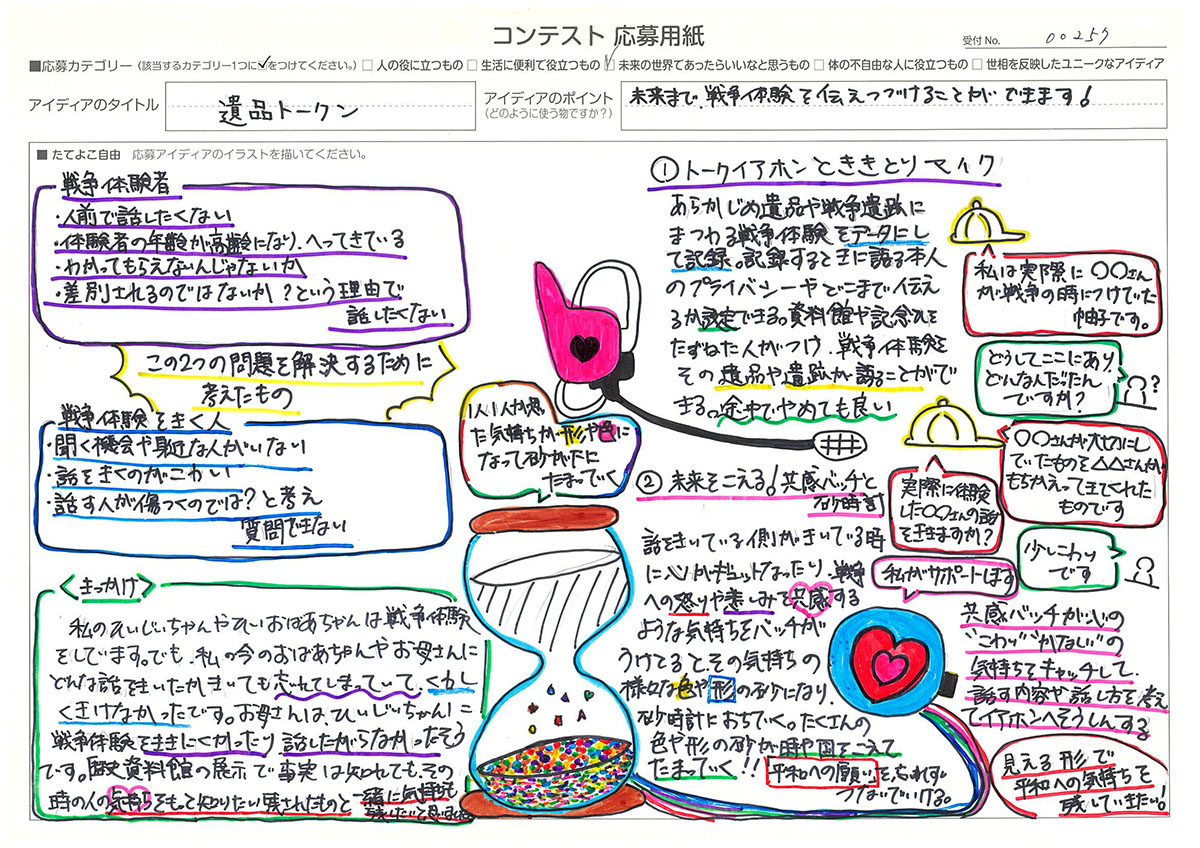 コンテスト 応募用紙
受付 No. 00257
■応募カテゴリー（該当するカテゴリー1つに✓をつけてください。）□ 人の役に立つもの □ 生活に便利で役立つもの ☑ 未来の世界であったらいいなと思うもの □ 体の不自由な人に役立つもの □ 世相を反映したユニークなアイディア
アイディアのタイトル
遺品トークン
アイディアのポイント
（どのように使う物ですか？）
未来まで、戦争体験を伝えつづけることができます！
■ たてよこ自由 応募アイディアのイラストを描いてください。
戦争体験者
・人前で話したくない
・体験者の年齢が高齢になり、へってきている
・わかってもらえないんじゃないか
・差別されるのではないか？という理由で
話したくない
この2つの問題を解決するために
考えたもの
戦争体験をきく人
・聞く機会や身近な人がいない
・話をきくのがこわい
・話す人が傷つくのでは？と考え
質問できない
＜きっかけ＞
私のひいじいちゃんやひいおばあちゃんは戦争体験
をしています。でも、私の今のおばあちゃんやお母さんに
どんな話をきいたかきいても忘れてしまっていて、くわし
くきけなかったです。お母さんは、ひいじいちゃんに
戦争体験をききにくかったり話したがらなかったそう
です。歴史資料館の展示で事実は知れても、その
時の人の気持ちをもって知りたい残されたものと一緒に気持ちも
残したいと思いました
①トークイアホンとききとりマイク
あらかじめ遺品や戦争遺跡に
まつわる戦争体験をデータにし
て記録。記録するときに語る本人
のプライバシーやどこまで伝え
るか設定できる。資料館や記念館を
たずねた人がつけ、戦争体験を
その遺品や遺跡が語ることがで
きる。途中でやめても良い
私は実際に〇〇さん
が戦争の時につけていた
帽子です。
どうしてここにあり、
どんなんだったん
ですか？
？
〇〇さんが大切にし
ていたものを△△さんが
もちかえってきてくれた
ものです
実際に体験
した〇〇さんの話
をききますか？
少しこわい
です
私がサポートします
1人1人が思っ
た気持ちが形や色に
なって砂がたに
たまっていく
②未来をこえる！共感バッチと
砂時計
話をきいている側がきいている時
に心がギュッとなったり、戦争
への怒りや悲しみを共感する
ような気持ちをバッチが
うけとると、その気持ちの
様々な色や形の砂になり、
砂時計におちていく。たくさんの
色や形の砂が時や国をこえて
たまっていく!!
平和への願いをわすれず
つないでいける。
共感バッチが心の
"こわい""かなしい"の
気持ちをキャッチして、
話す内容や話し方を考え
てイアホンへそうしんする
見える形で
平和への気持ちを
残していきたい！